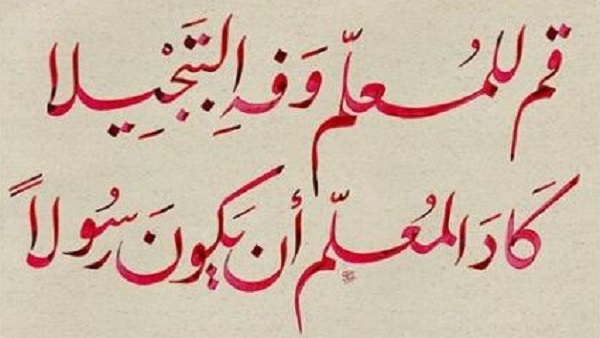 قم للمُعلّم وَفهِ التبَجْيِلا
كَادَ المُعلّم أن يَكونَ رسُولاً